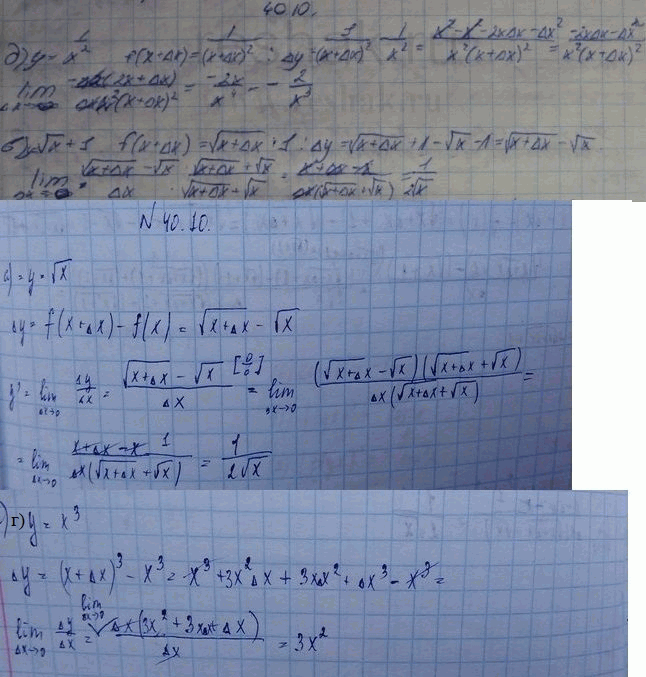 40.10.
д) y = 1/x²   f(x+Δx) = 1/(x+Δx)² ; Δy = 1/(x+Δx)² - 1/x² = (x² - x² - 2xΔx - Δx²)/(x²(x+Δx)²) = (-2xΔx - Δx²)/(x²(x+Δx)²)
lim Δx→0 (2x+Δx)/(x+Δx)² = -2x/x⁴ = -2/x³
√x + 1   f(x+Δx) = √(x+Δx) + 1 ; Δy = √(x+Δx) + 1 - √x - 1 = √(x+Δx) - √x
lim Δx→0 (√(x+Δx) - √x)/Δx · (√(x+Δx) + √x)/(√(x+Δx) + √x) = (x+Δx-x)/(Δx(√(x+Δx) + √x)) = 1/(2√x)
N 40.10.
а) = y = √x
Δy = f(x+Δx) - f(x) = √(x+Δx) - √x
y' = lim Δx→0 Δy/Δx = (√(x+Δx) - √x)/Δx [0/0] = lim Δx→0 ((√(x+Δx) - √x)(√(x+Δx) + √x))/(Δx(√(x+Δx+√x)) =
= lim Δx→0 (x+Δx-x 1)/(Δx(√(x+Δx) + √x)) = 1/(2√x)
г) y = x³
Δy = (x+Δx)³ - x³ = x³ + 3x²Δx + 3xΔx² + Δx³ - x³ =
lim Δx→0 Δy/Δx = lim Δx→0 Δx(3x² + 3xΔx + Δx)/Δx = 3x²